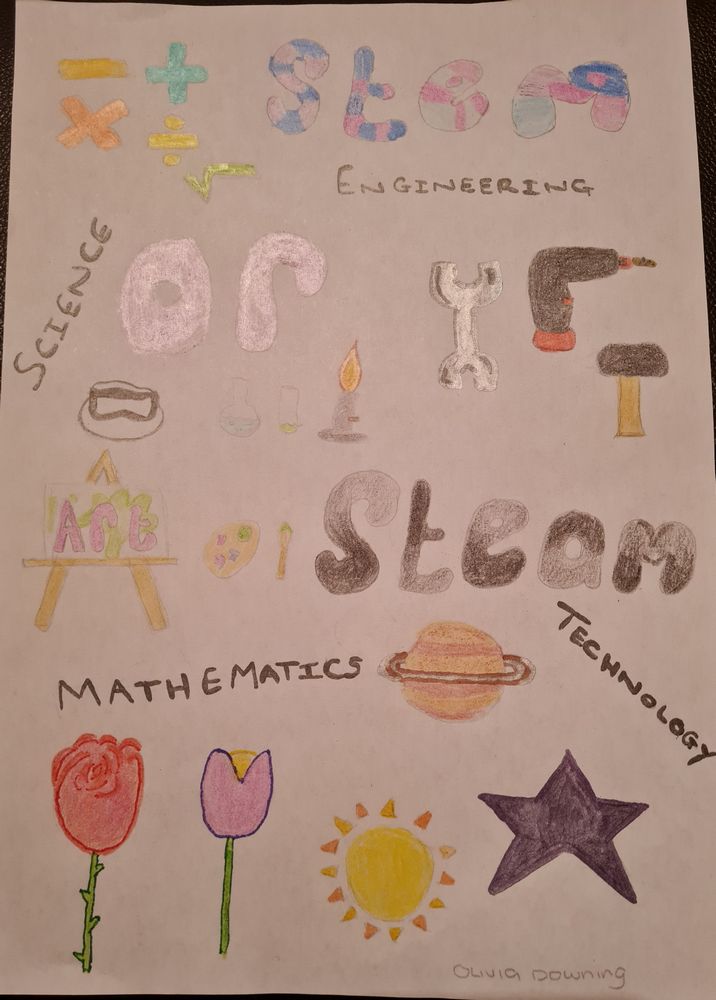 − + Stem
× ÷
√
ENGINEERING
SCIENCE
Or
Art
Steam
MATHEMATICS
TECHNOLOGY
Olivia Downing